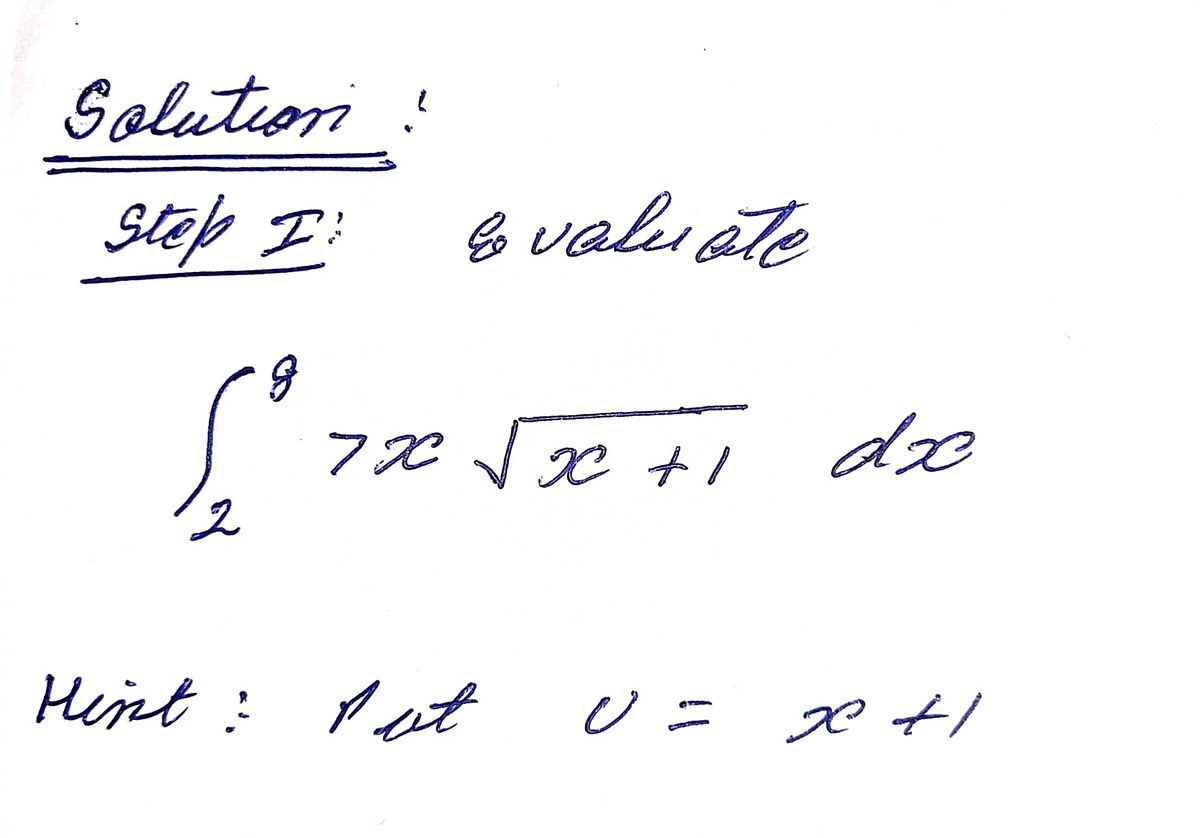 Solution :
Step I : Evaluate
∫₂⁸ 7x √(x + 1) dx
Hint : Put u = x + 1